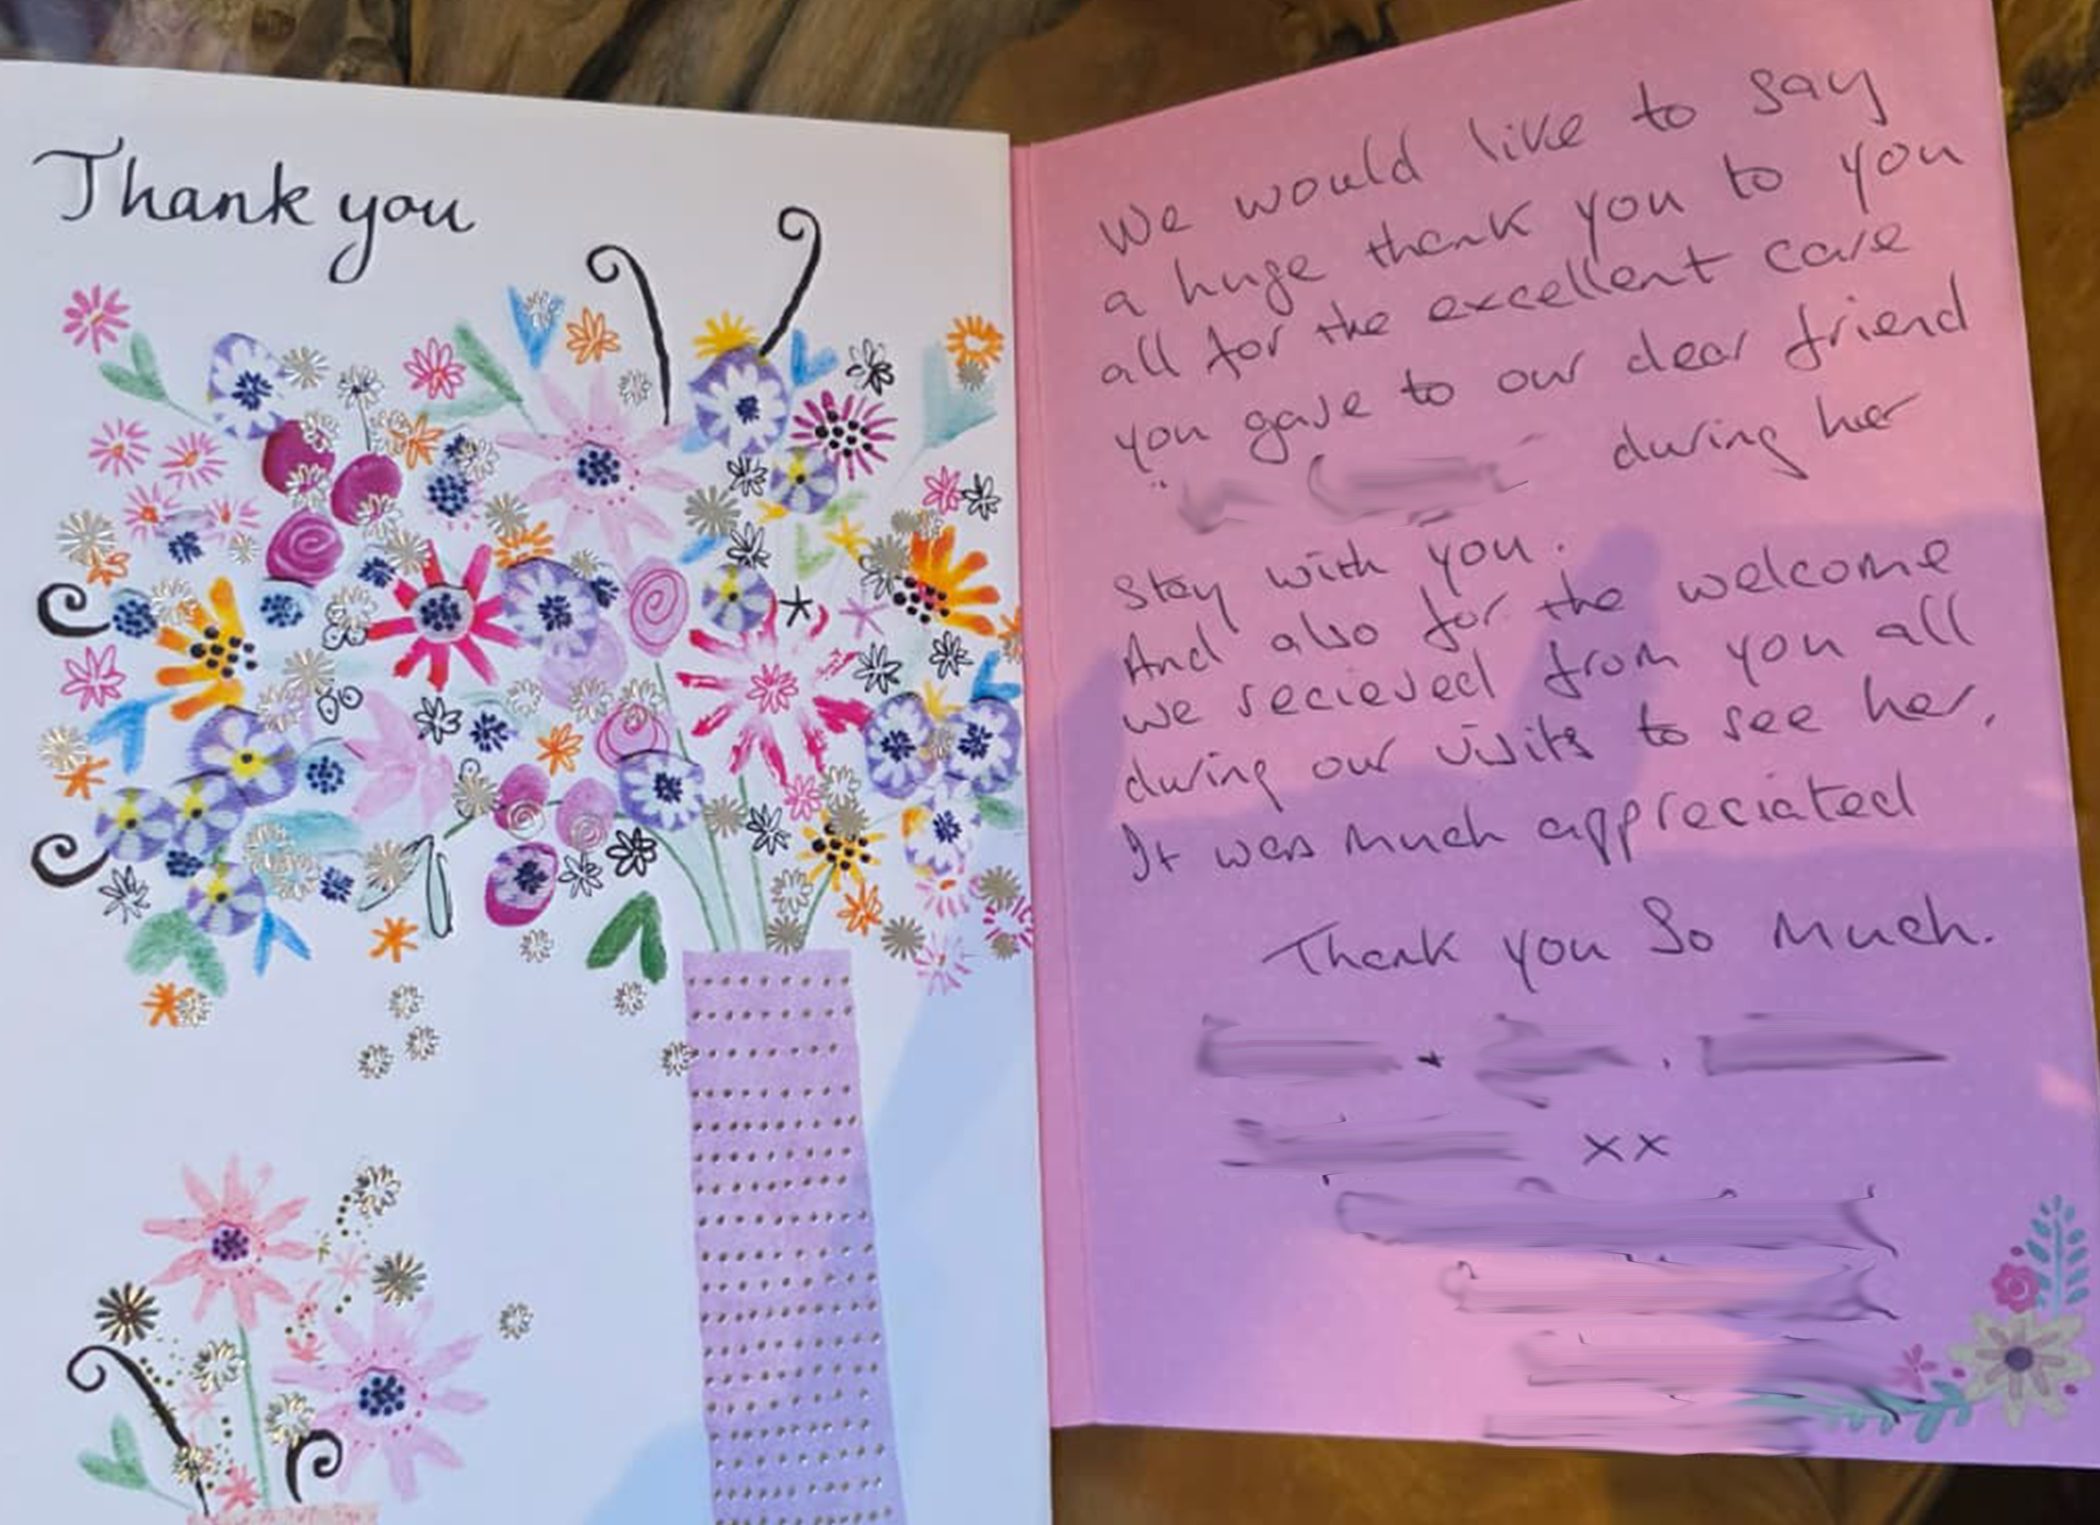 Thank you
We would like to say
a huge thank you to you
all for the excellent care
you gave to our dear friend
during her
Stay with you.
And also for the welcome
we recieved from you all
during our visits to see her,
It was much appreciated
Thank you So Much.
xx